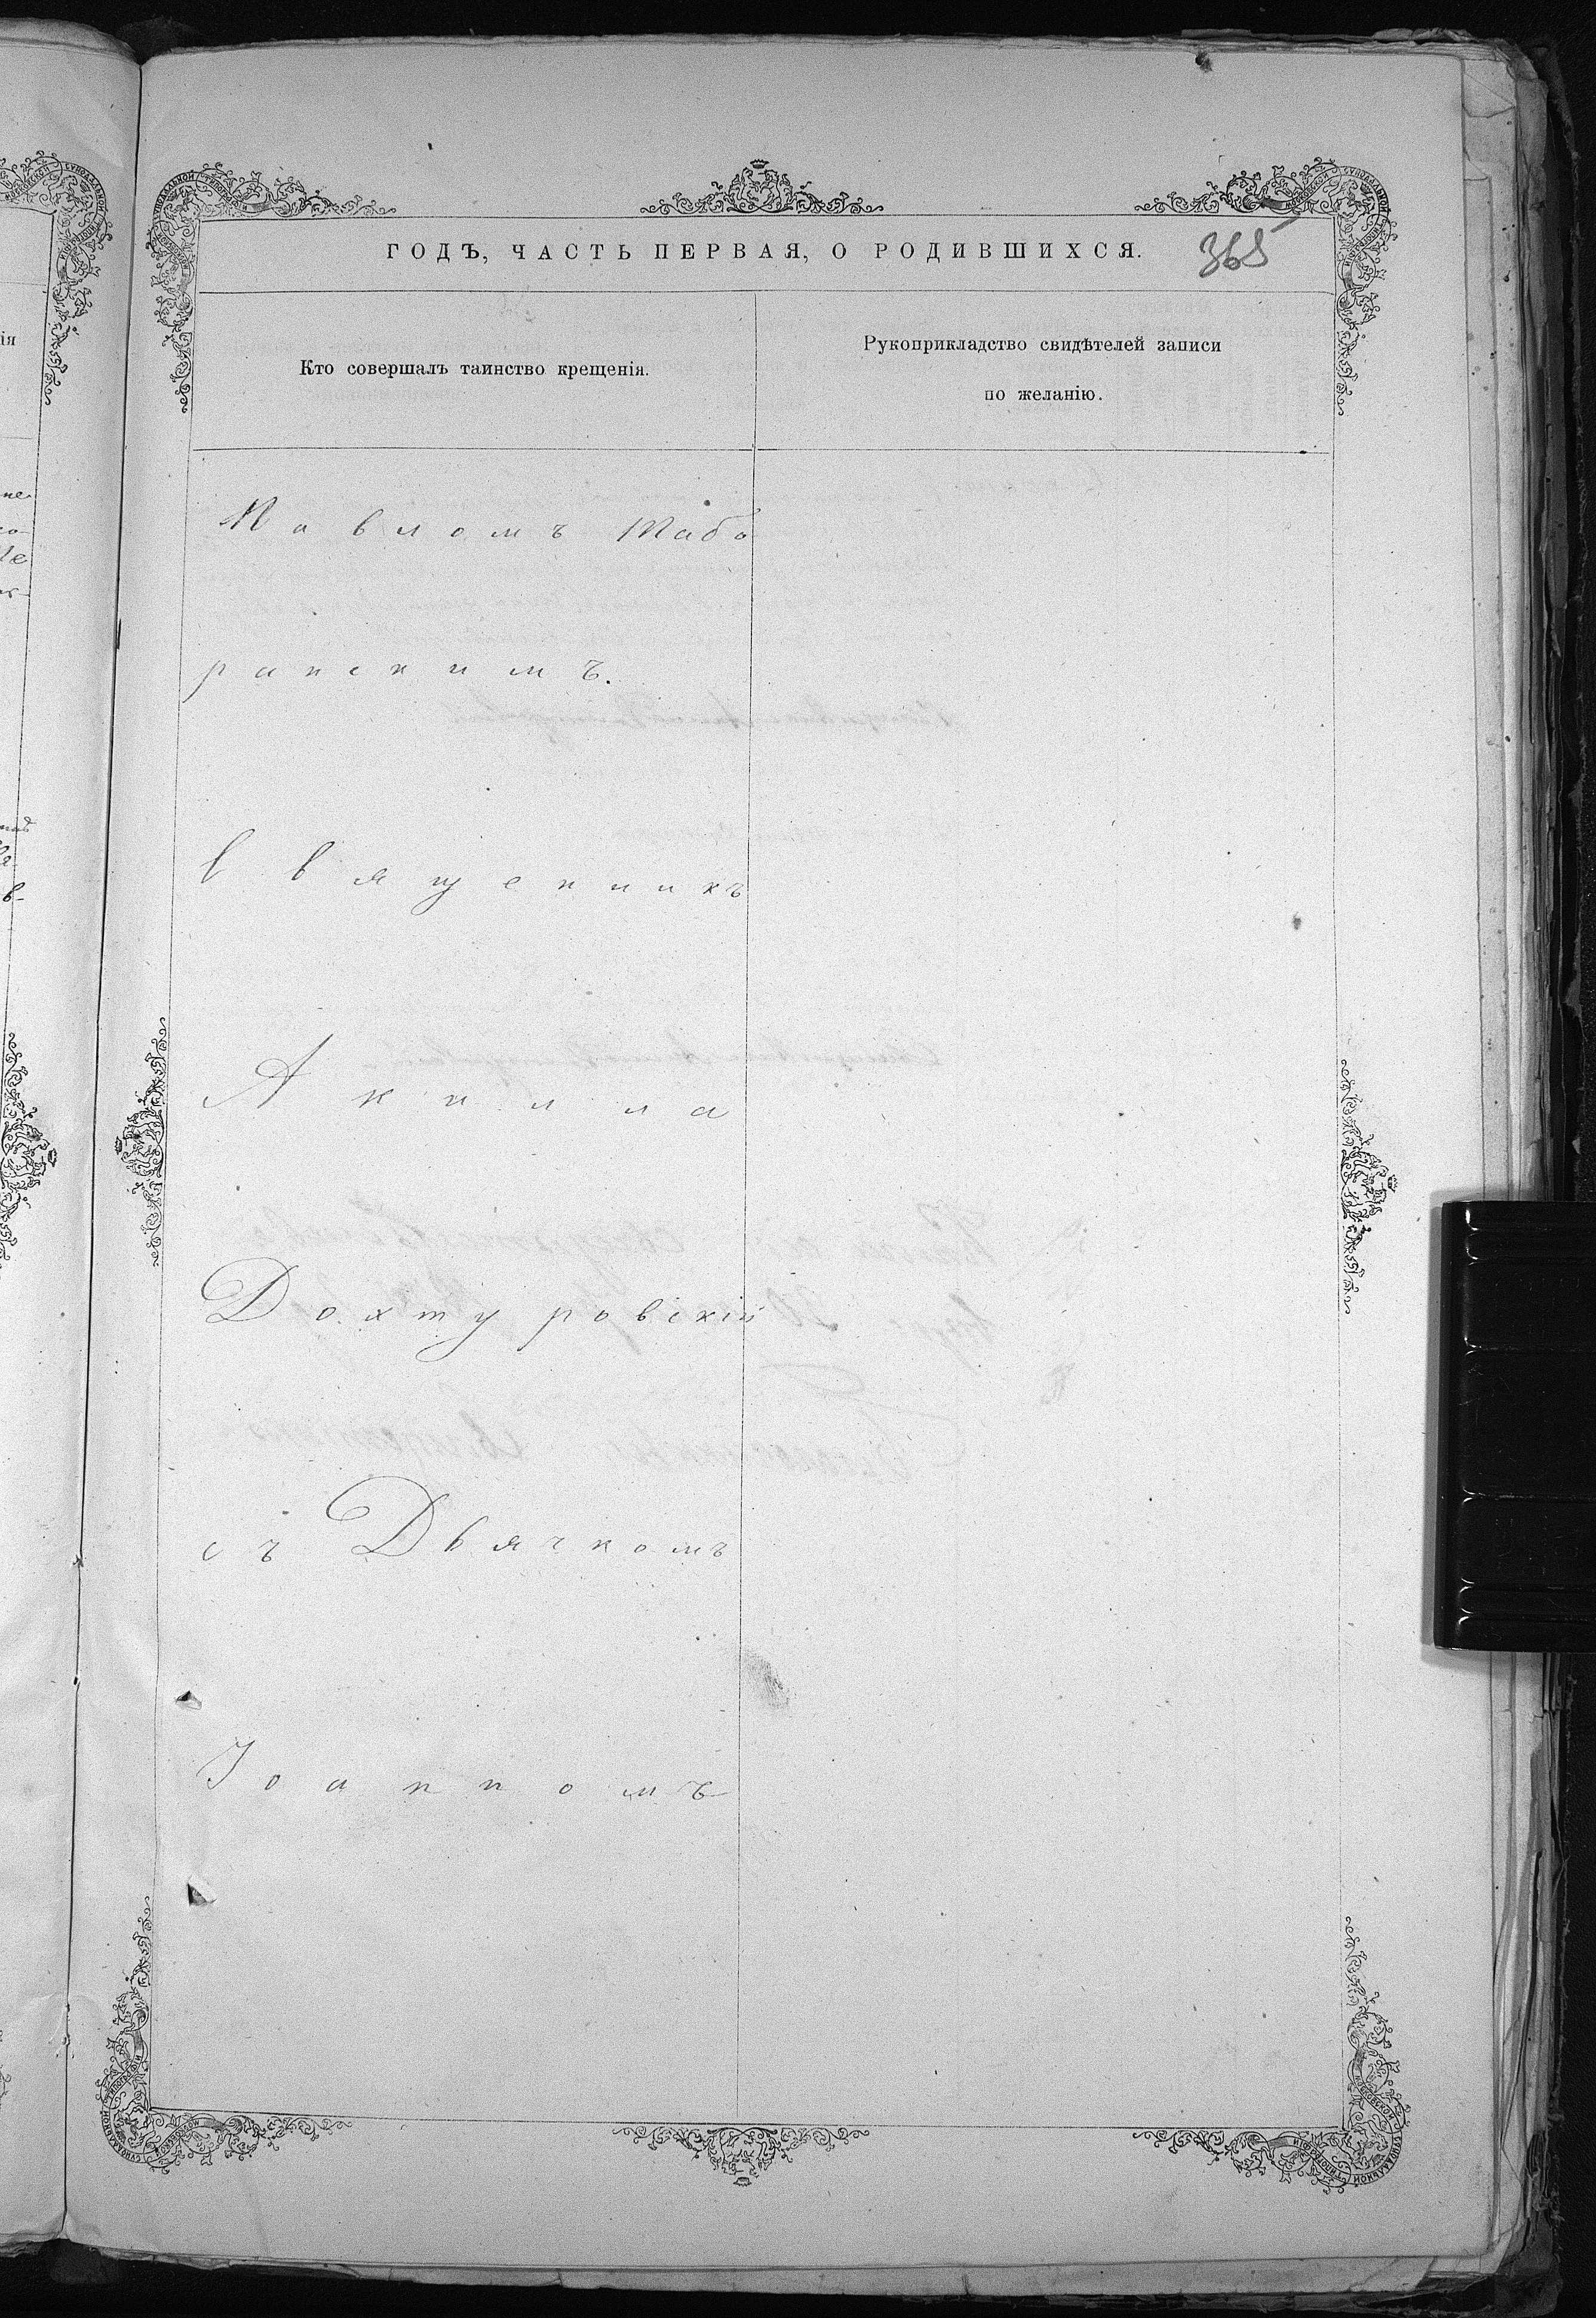 ГОДЪ, ЧАСТЬ ПЕРВАЯ, О РОДИВШИХСЯ.
365
Кто совершалъ таинство крещенія.
Рукоприкладство свидѣтелей записи
по желанію.
Павломъ Таба
ранскимъ.
Священникъ
Акила
Дохтуровскій
съ Дьячкомъ
Іоанномъ